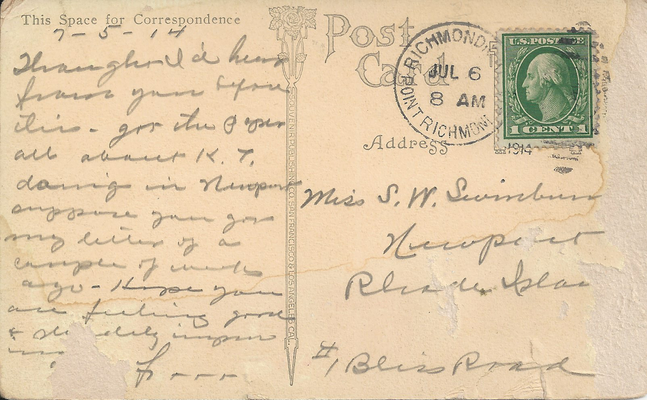 This Space for Correspondence
7-5-14
Thought I'd hear
from you before
this - got the Paper
all about K. T.
doing in Newport
suppose you got
my letter of a
couple of weeks
ago - Hope you
are feeling good
& steadily
Post
Card
Address
RICHMOND
JUL 6
8 AM
POINT RICHMOND
1914
U.S. POSTAGE
1 CENT 1
Miss S. W. Swinburn
Newport
Rhode Islan
#1 Bliss Road